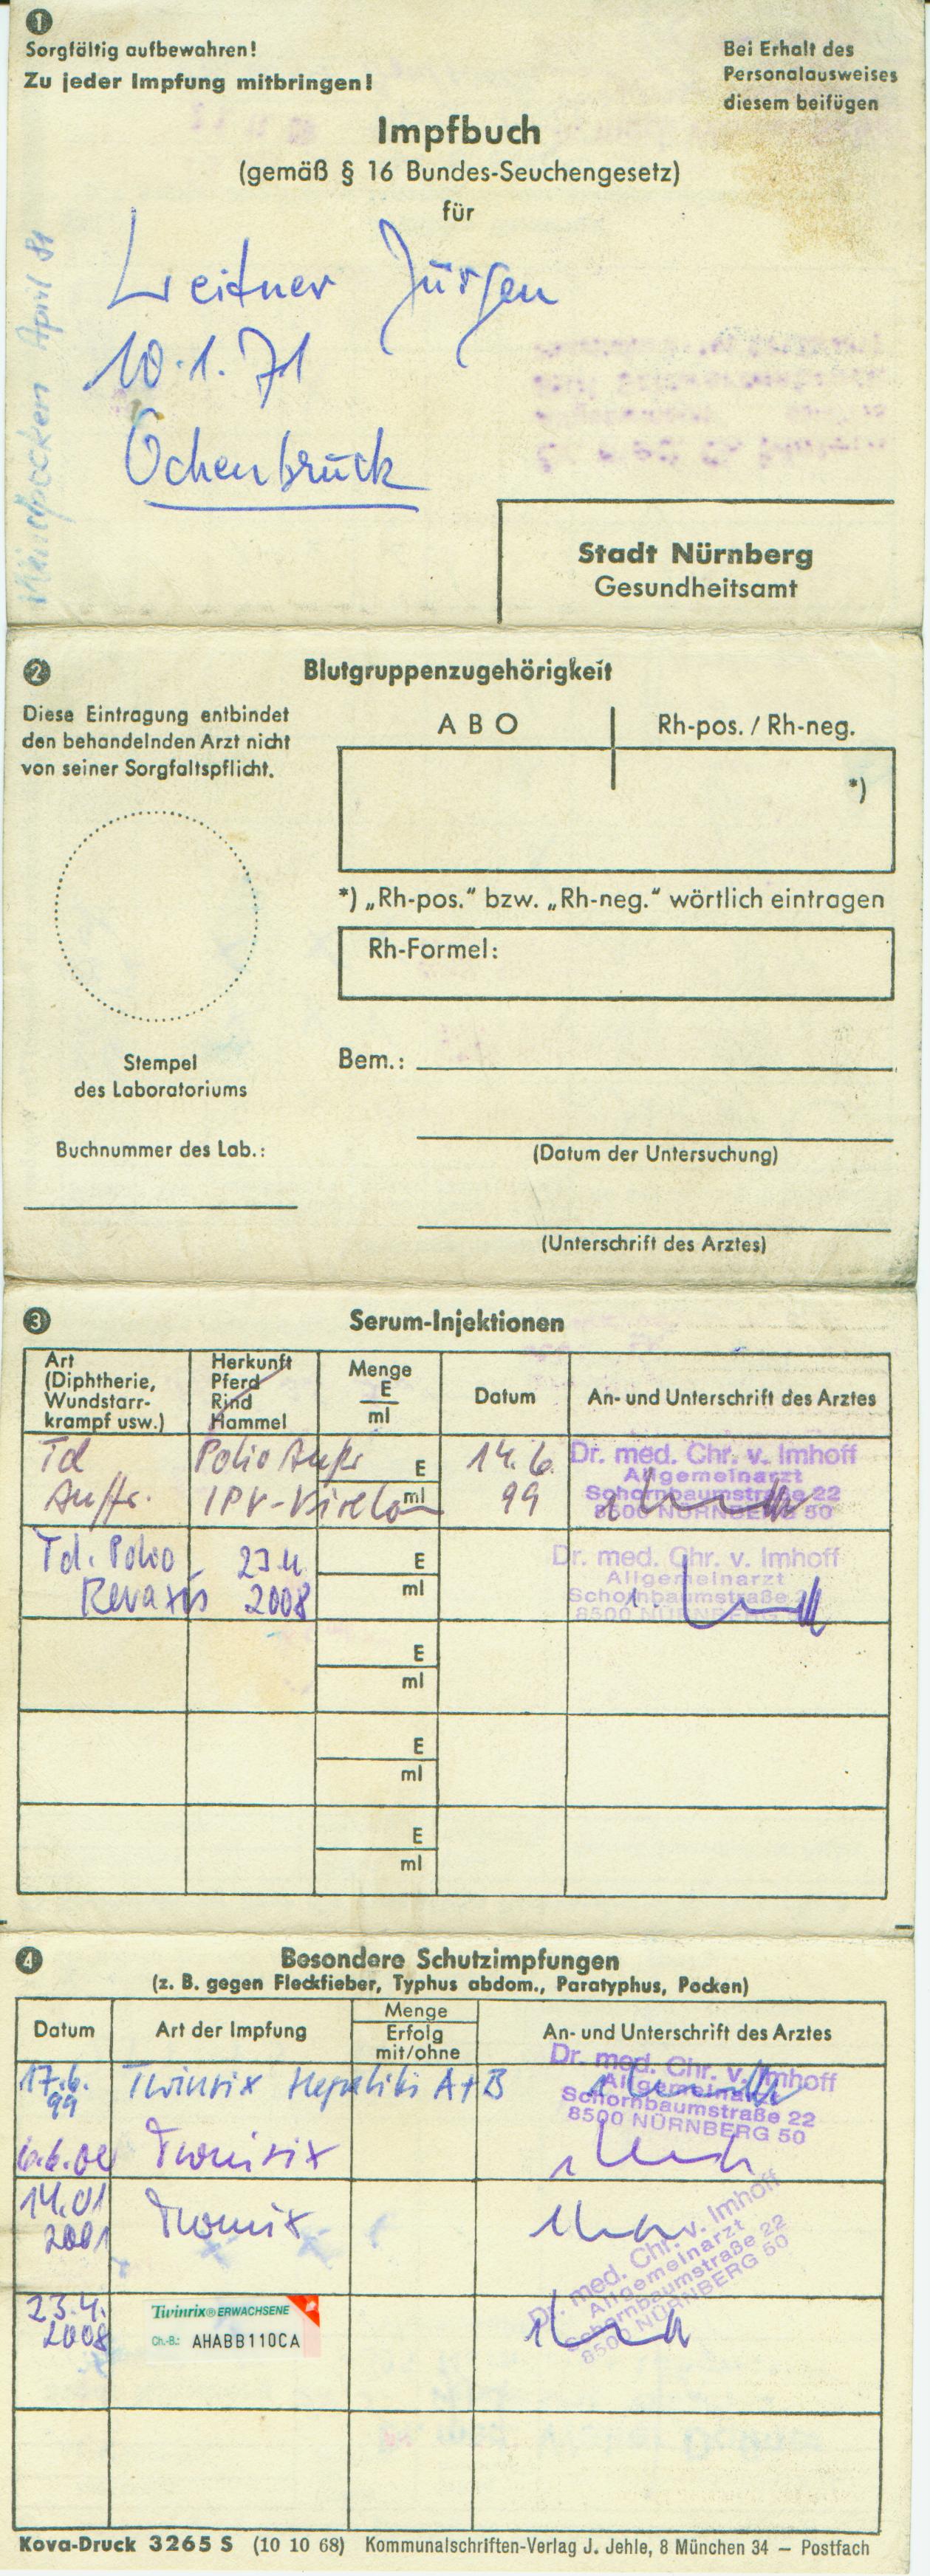 1
Sorgfältig aufbewahren!
Zu jeder Impfung mitbringen!
Bei Erhalt des
Personalausweises
diesem beifügen
Impfbuch
(gemäß § 16 Bundes-Seuchengesetz)
für
Leitner Jürgen
10.1.71
Ochenbruck
Windpocken April 81
Stadt Nürnberg
Gesundheitsamt
2
Blutgruppenzugehörigkeit
Diese Eintragung entbindet
den behandelnden Arzt nicht
von seiner Sorgfaltspflicht.
A B O
Rh-pos. / Rh-neg.
*)
*) „Rh-pos.“ bzw. „Rh-neg.“ wörtlich eintragen
Rh-Formel:
Stempel
des Laboratoriums
Bem.:
Buchnummer des Lab.:
(Datum der Untersuchung)
(Unterschrift des Arztes)
3
Serum-Injektionen
Art
(Diphtherie,
Wundstarr-
krampf usw.)
Herkunft
Pferd
Rind
Hammel
Menge
E
ml
Datum
An- und Unterschrift des Arztes
Td
Auffr.
Polio Auffr
IPV-Virelon
E
ml
14.6.
99
Dr. med. Chr. v. Imhoff
Allgemeinarzt
Schornbaumstraße 22
8500 NÜRNBERG 50
Td. Polio
Revaxis
23.4.
2008
E
ml
Dr. med. Chr. v. Imhoff
Allgemeinarzt
Schornbaumstraße
8500 NÜRNBERG
E
ml
E
ml
E
ml
4
Besondere Schutzimpfungen
(z. B. gegen Fleckfieber, Typhus abdom., Paratyphus, Pocken)
Datum
Art der Impfung
Menge
Erfolg
mit/ohne
An- und Unterschrift des Arztes
17.6.
99
Twinrix Hepatitis A+B
Dr. med. Chr. v. Imhoff
Allgemeinarzt
Schornbaumstraße 22
8500 NÜRNBERG 50
6.6.00
Twinrix
14.01
2001
Twinrix
Dr. med. Chr. v. Imhoff
Allgemeinarzt
Schornbaumstraße 22
8500 NÜRNBERG 50
23.4.
2008
Twinrix® ERWACHSENE
Ch.-B.: AHABB110CA
Kova-Druck 3265 S (10 10 68) Kommunalschriften-Verlag J. Jehle, 8 München 34 — Postfach